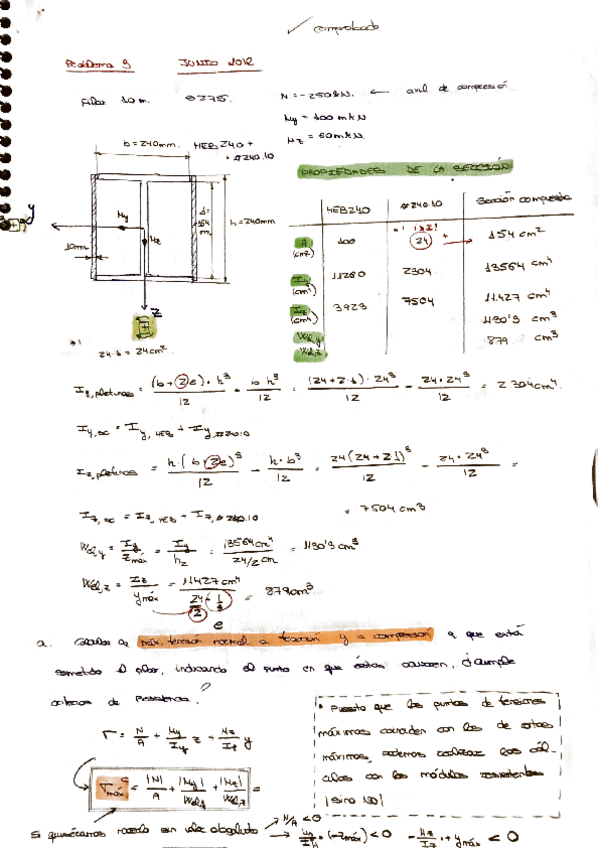 ✓ comprobado
Problema 9 JUNIO 2012
Pilar 10 m. S275.
N = -250 kN. ← axil de compresión.
My = 100 mkN
Mz = 60 mkN.
b = 240mm. HEB 240 +
+ #240.10
y
My
Mz
d=
164
h = 240mm
10mm
z
*1
24·1 = 24 cm²
PROPIEDADES DE LA SECCIÓN
HEB240 #240.10 Sección compuesta
A (cm²) 100 24 154 cm²
Iy (cm⁴) 11260 2304 13564 cm⁴
Iz (cm⁴) 3923 7504 11.427 cm⁴
Wel,y 1130'3 cm³
Wel,z 879 cm³
Iy,pletinas = (b+2e)·h³/12 - b·h³/12 = (24+2·1)·24³/12 - 24·24³/12 = 2304cm⁴.
Iy,sc = Iy,HEB + Iy,#240.10
Iz,pletinas = h·(b+2e)³/12 - h·b³/12 = 24(24+2·1)³/12 - 24·24³/12 =
Iz,sc = Iz,HEB + Iz,#240.10 = 7504 cm³
Wel,y = Iy/zmáx = Iy/hz = 13564cm⁴/24/2 cm = 1130'3 cm³
Wel,z = Iz/ymáx = 11427cm⁴/24/2 + 1 = 879cm³
e
a. Calcular la máx. tensión normal a tracción y a compresión a que está
sometido el pilar, indicando el punto en que éstas ocurren, ¿cumple
criterios de resistencia?
σ = N/A + My/Iy z + Mz/Iz y
σmáx^c = |N|/A + |My|/Wel,y + |Mz|/Wel,z =
* Puesto que los puntos de tensiones
máximas coinciden con los de cotas
máximas, podemos realizar los cál-
culos con los módulos resistentes
¡sino NO!
Si quisiéramos hacerlo sin valor absoluto → N/A < 0
→ My/Iy·(-zmáx) < 0 - Mz/Iz·+ymáx < 0